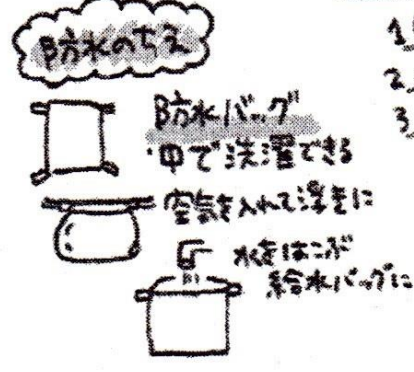 防水のちえ
防水バッグ
・中で洗濯できる
空気を入れて浮きに
水をはこぶ
給水バッグに
1
2
3